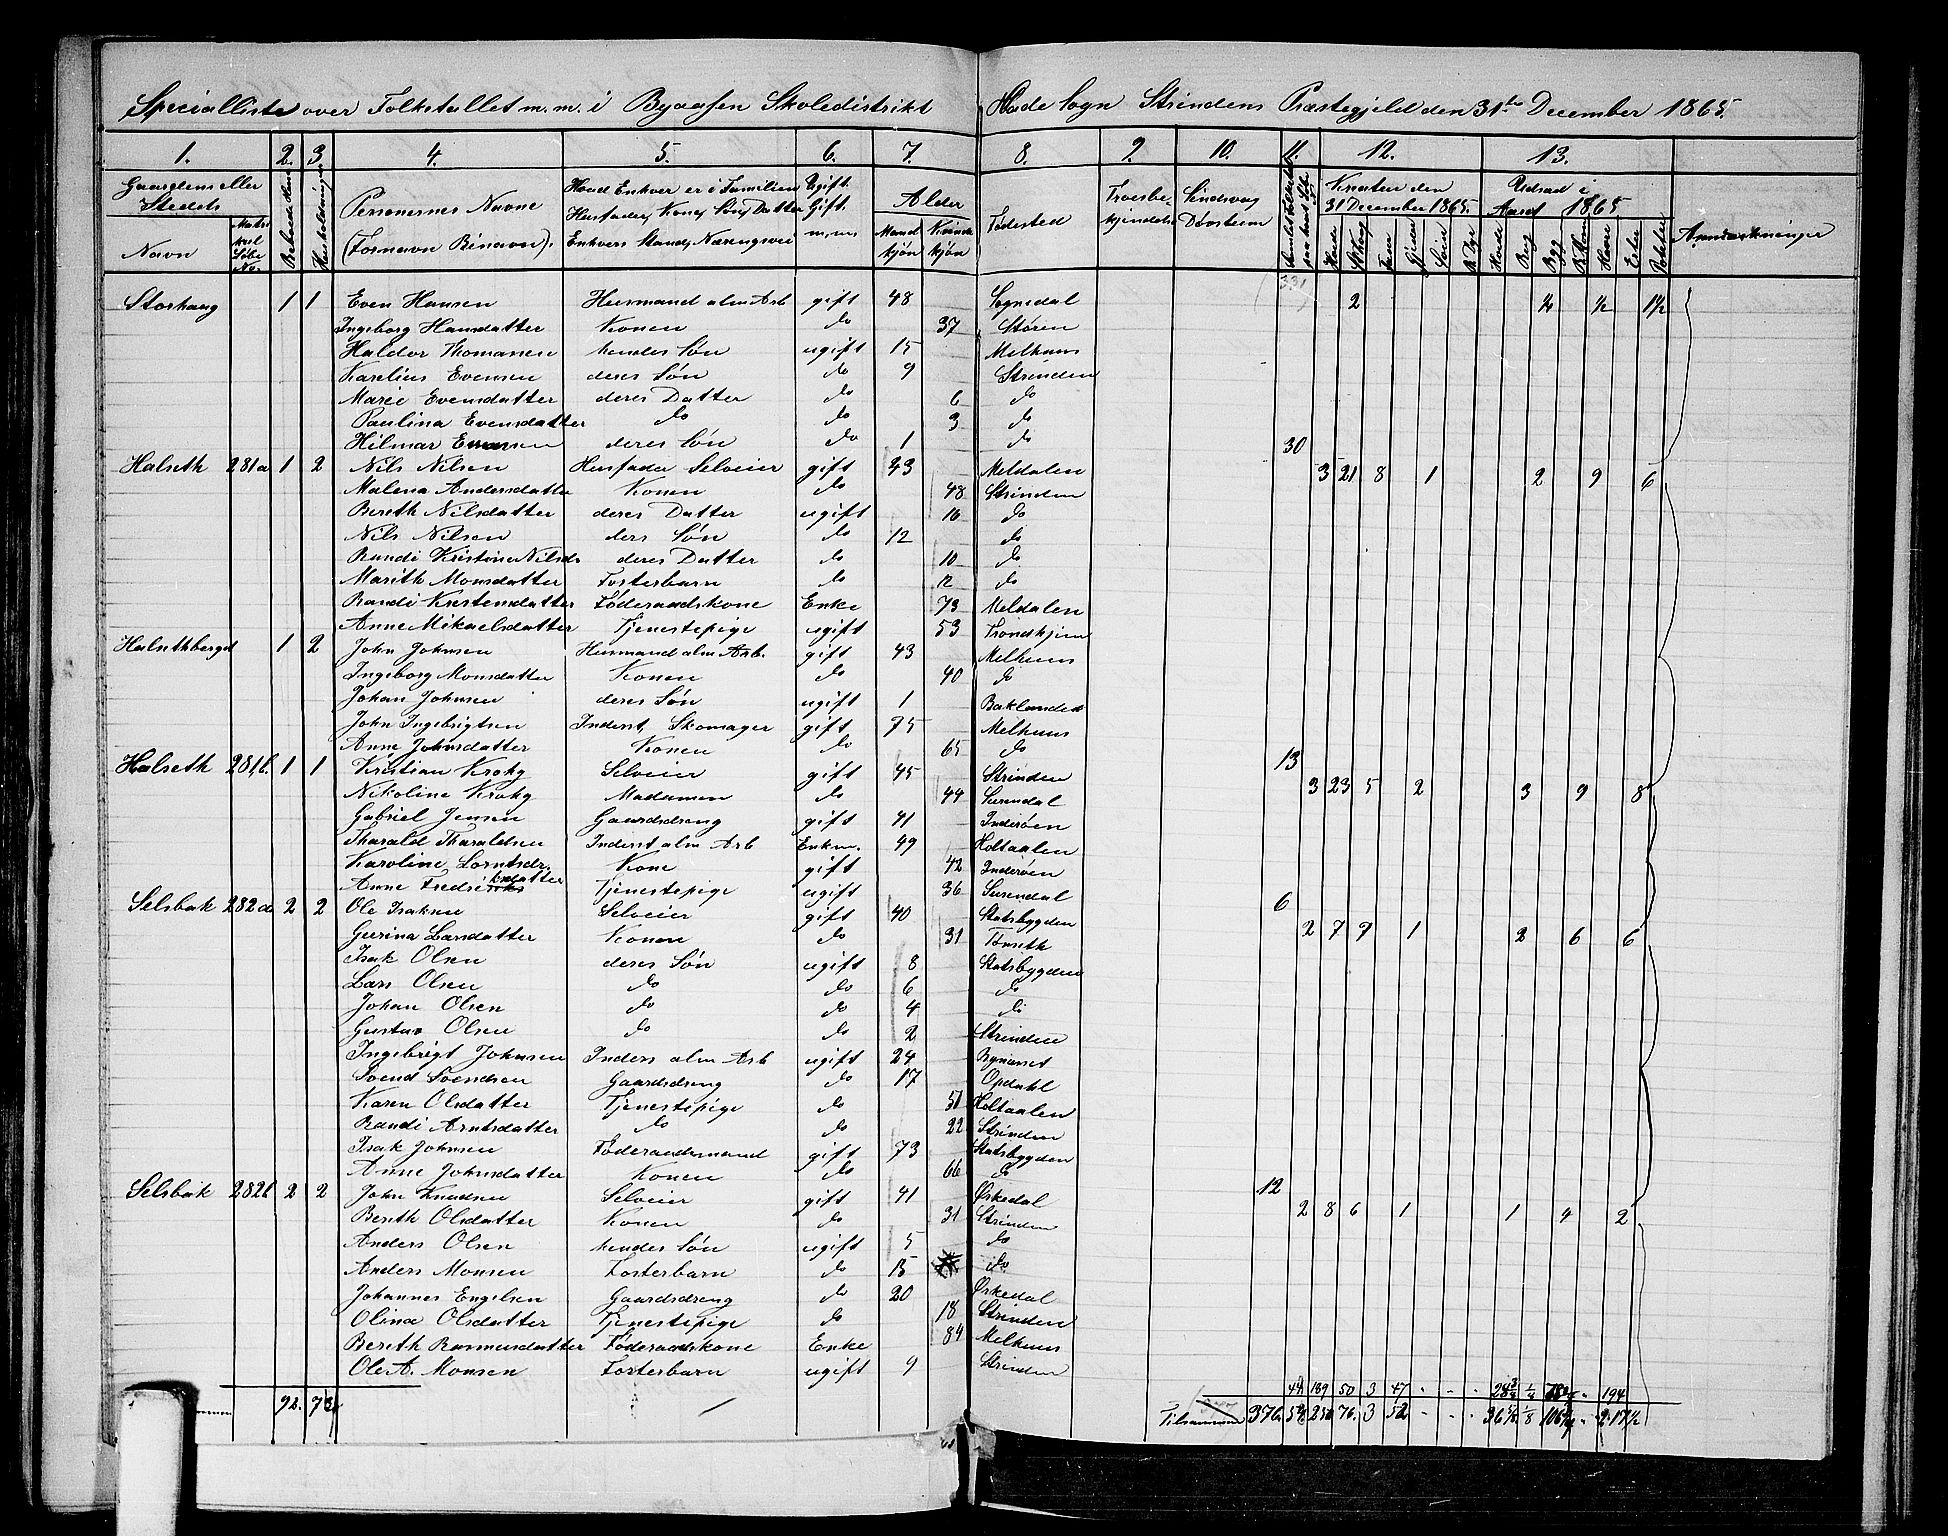 Specialliste over Folketallet m. m. i Byaasen Skoledistrikt Hade Sogn Strindens Præstegjeld den 31te December 1865.
1. 2. 3. 4. 5. 6. 7. 8. 9. 10. 11. 12. 13.
Gaardens eller Stedets Navn Matrikul Løbe No. Beboede Huse Husholdninger Personernes Navne (Fornavn Binavn). Hvad Enhver er i Familien Husfader, Kone, Søn, Datter Enhvers Stand, Næringsvei Ugift. Gift. m.m. Alder Mandkjøn Kvindekjøn Fødested Troesbekjendelse Sindsvag Døvstum Kreaturhold den 31 December 1865. Heste St. Kvæg Faar Gjeder Sviin R. Dyr Udsæd i Aaret 1865 Hvede Rug Byg Bl. Korn Havre Erter Poteter Anmærkninger
Storhaug 1 1 Even Hansen Husmand alm Arb gift 48 Sognedal 2 ¼ ½ 1½
Ingeborg Hansdatter Konen do 37 Støren
Haldor Thomasen hendes Søn ugift 15 Melhuus
Karelius Evensen deres Søn do 9 Strinden
Maree Evensdatter deres Datter do 6 do
Paulina Evensdatter do do 3 do
Hilmar Evensen deres Søn do 1 do 30
Halseth 281a 1 2 Nils Nilsen Husfader Selveier gift 43 Meldalen 3 21 8 1 2 9 6
Malena Andersdatter Konen do 48 Strinden
Bereth Nilsdatter deres Datter ugift 16 do
Nils Nilsen ders Søn do 12 do
Randi Kristine Nilsd. deres Datter do 10 do
Marith Monsdatter Fosterbarn do 12 do
Randi Kristensdatter Føderaadskone Enke 73 Meldalen
Anne Mikaelsdatter Tjenestepige ugift 53 Trondhjem
Halsethberget 1 2 John Johnsen Husmand alm Arb. gift 43 Melhuus
Ingeborg Monsdatter Konen do 40 do
Johan Johnsen deres Søn ugift 1 Baklandet
John Ingebrigtsen Inderst, Skomager gift 75 Melhuus
Anne Johnsdatter Konen do 65 do 13
Halseth 281,b. 1 1 Kristian Krohg Selveier gift 45 Strinden 3 23 5 2 3 9 8
Nikoline Krohg Madamen do 44 Surendal
Gabriel Jensen Gaardsdreng gift 41 Inderøen
Tharald Tharaldsen Inderst alm Arb Enkm. 49 Holtaalen
Karoline Lorntsdr. Kone gift 42 Inderøen
Anne Fredriksdatter Tjenestepige ugift 36 Surendal 6
Selsbak 282a 2 2 Ole Isaksen Selveier gift 40 Statsbygden 2 7 7 1 2 6 6
Gurina Larsdatter Konen do 31 Tønseth
Isak Olsen deres Søn ugift 8 Statsbygden
Lars Olsen do do 6 do
Johan Olsen do do 4 do
Gustav Olsen do do 2 Strinden
Ingebrigt Johnsen Inders alm Arb ugift 24 Bynæsset
Svend Svendsen Gaardsdreng do 17 Opdahl
Karen Olsdatter Tjenestepige do 51 Holtaalen
Randi Arntsdatter do do 22 Strinden
Isak Johnsen Føderaadsmand gift 73 Statsbygden
Anne Johnsdatter Konen do 66 do 12
Selsbak 282b 2 2 John Knudsen Selveier gift 41 Ørkedal 2 8 6 1 1 4 2
Bereth Olsdatter Konen do 31 Strinden
Anders Olsen hendes Søn ugift 5 do
Anders Monsen Fosterbarn do 15 do
Johannes Engelsen Gaardsdreng do 20 Ørkedal
Olina Olsdatter Tjenestepige do 18 Strinden
Bereth Rasmusdatter Føderaadskone Enke 84 Melhuus
Ole A. Monsen Fosterbarn ugift 9 Strinden
44 189 50 3 47 - - - 28¾ ¼ 194
92. 73 Tilsammen 376 76. 3 52 - - - 36⅝ ⅛ 217½